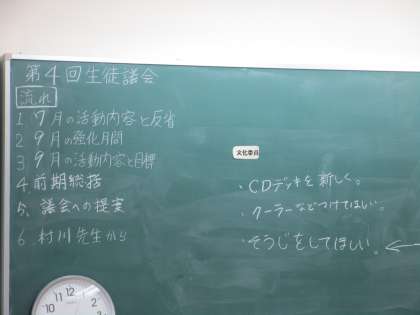 第4回生徒議会
流れ
1 7月の活動内容と反省
2 9月の強化月間
3 9月の活動内容と目標
4 前期総括
5、議会への提案
6 村川先生から
文化委員
・CDデッキを新しく。
・クーラーなどつけてほしい。
・そうじをしてほしい。
10 11 12 1 2